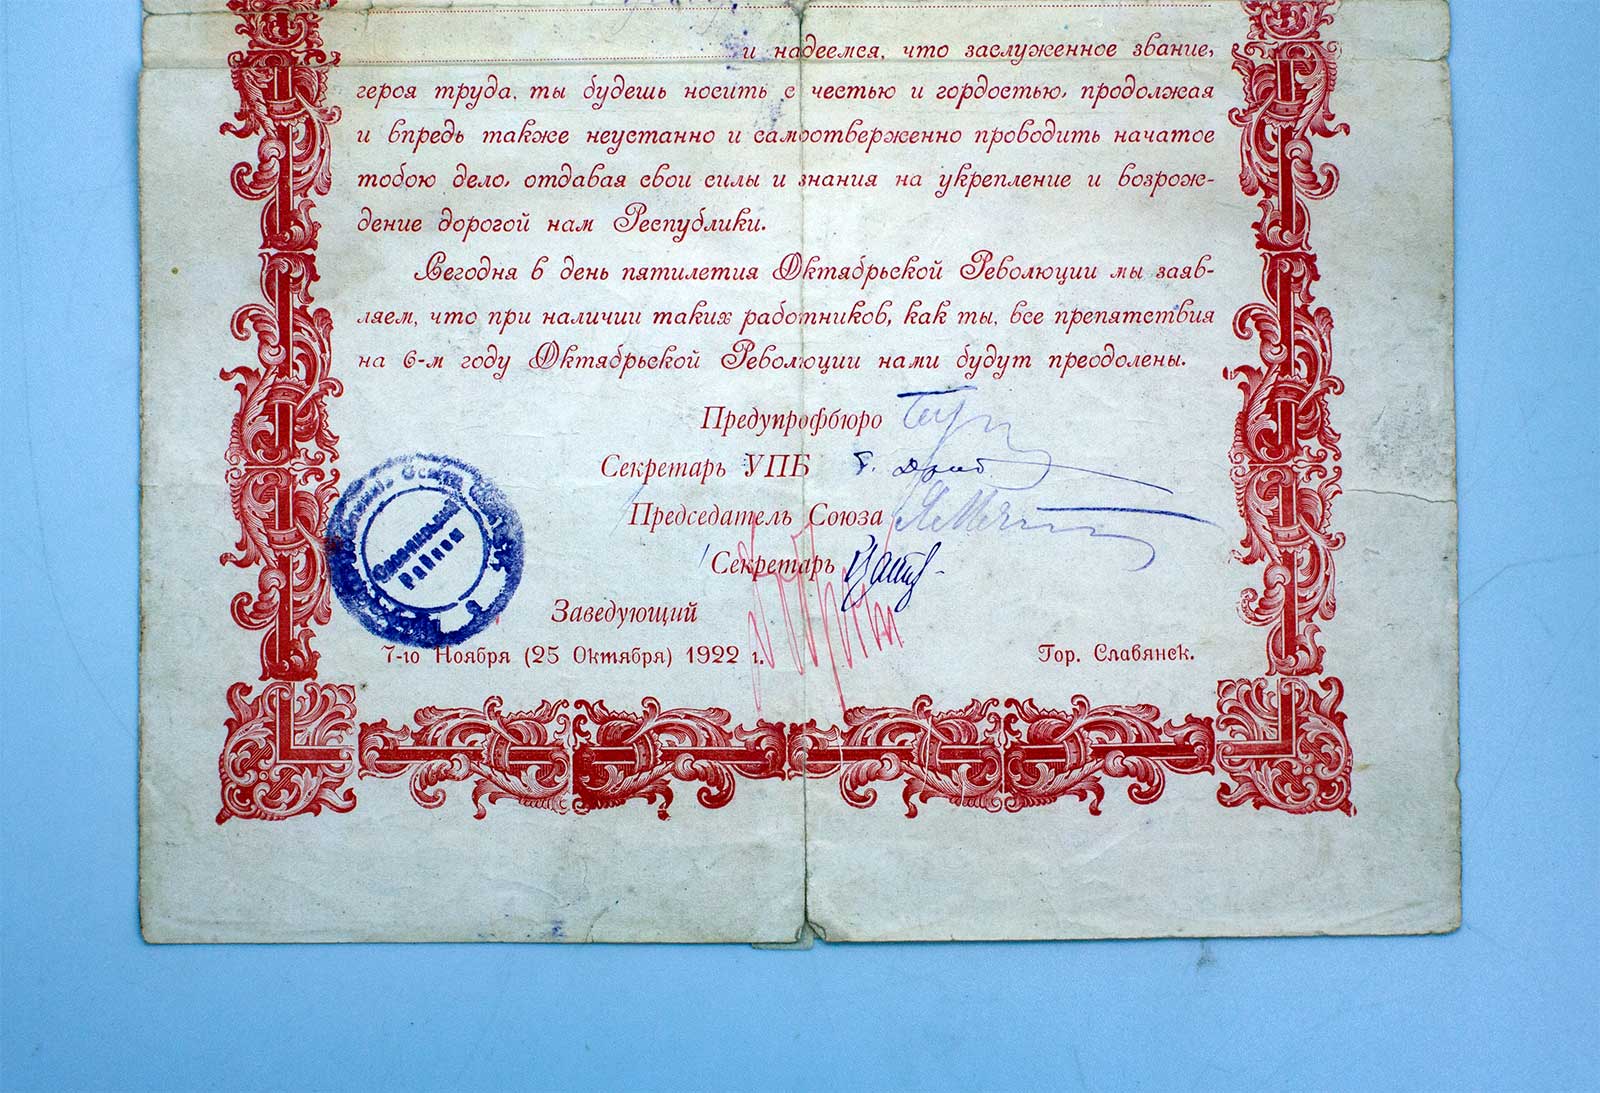 и надеемся, что заслуженное звание,
героя труда, ты будешь носить с честью и гордостью, продолжая
и впредь также неустанно и самоотверженно проводить начатое
тобою дело, отдавая свои силы и знания на укрепление и возрож-
дение дорогой нам Республики.
Сегодня в день пятилетия Октябрьской Революции мы заяв-
ляем, что при наличии таких работников, как ты, все препятствия
на 6-м году Октябрьской Революции нами будут преодолены.
Предупрофбюро
Секретарь УПБ
Председатель Союза
Секретарь
Заведующий
7-го Ноября (25 Октября) 1922 г.
Гор. Славянск.
район